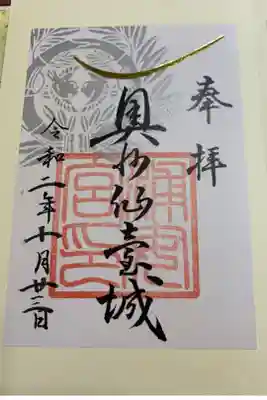 奉拝
奥州仙臺城
宮印
令和二年十月廿三日